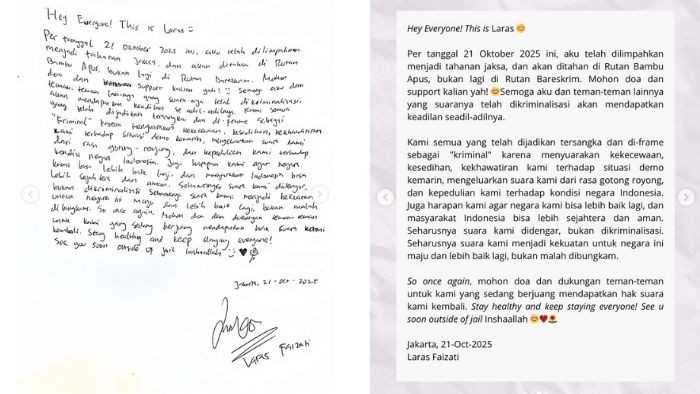 Hey Everyone! This is Laras
Per tanggal 21 Oktober 2025 ini, aku telah dilimpahkan
menjadi tahanan jaksa, dan akan ditahan di Rutan
Bambu Apus, bukan lagi di Rutan Bareskrim. Mohon
doa dan support kalian yah! Semoga aku dan
teman-teman lainnya yang suaranya telah dikriminalisasi
akan mendapatkan keadilan seadil-adilnya. Kami semua
yang telah dijadikan tersangka dan di-frame sebagai
"kriminal" karena menyuarakan kekecewaan, kesedihan, kekhawatiran
kami terhadap situasi demo kemarin, mengeluarkan suara kami
dari rasa gotong-royong, dan kepedulian kami terhadap
kondisi negara Indonesia. Juga harapan kami agar negara
kami bisa lebih baik lagi, dan masyarakat Indonesia bisa
lebih sejahtera dan aman. Seharusnya suara kami didengar,
bukan dikriminalisasi. Seharusnya suara kami menjadi kekuatan
untuk negara ini maju dan lebih baik lagi, bukan malah
dibungkam. So once again, Mohon doa dan dukungan teman-teman
untuk kami yang sedang berjuang mendapatkan hak suara kami
kembali. Stay healthy and keep staying everyone!
See you soon outside of jail Inshaallah
Jakarta, 21-Oct-2025
Laras Faizati
Hey Everyone! This is Laras 😊
Per tanggal 21 Oktober 2025 ini, aku telah dilimpahkan
menjadi tahanan jaksa, dan akan ditahan di Rutan Bambu
Apus, bukan lagi di Rutan Bareskrim. Mohon doa dan
support kalian yah! 😊Semoga aku dan teman-teman lainnya
yang suaranya telah dikriminalisasi akan mendapatkan
keadilan seadil-adilnya.
Kami semua yang telah dijadikan tersangka dan di-frame
sebagai "kriminal" karena menyuarakan kekecewaan,
kesedihan, kekhawatiran kami terhadap situasi demo
kemarin, mengeluarkan suara kami dari rasa gotong royong,
dan kepedulian kami terhadap kondisi negara Indonesia.
Juga harapan kami agar negara kami bisa lebih baik lagi, dan
masyarakat Indonesia bisa lebih sejahtera dan aman.
Seharusnya suara kami didengar, bukan dikriminalisasi.
Seharusnya suara kami menjadi kekuatan untuk negara ini
maju dan lebih baik lagi, bukan malah dibungkam.
So once again, mohon doa dan dukungan teman-teman
untuk kami yang sedang berjuang mendapatkan hak suara
kami kembali. Stay healthy and keep staying everyone! See u
soon outside of jail Inshaallah 😊❤️🌻
Jakarta, 21-Oct-2025
Laras Faizati